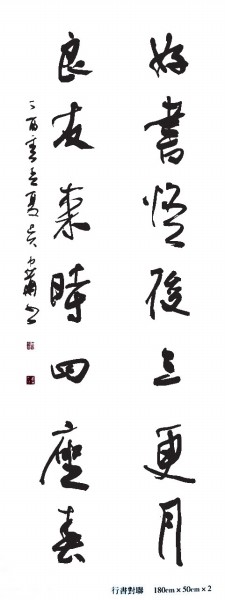 好書悟後三更月
良友來時四座春
行書對聯 180cm×50cm×2